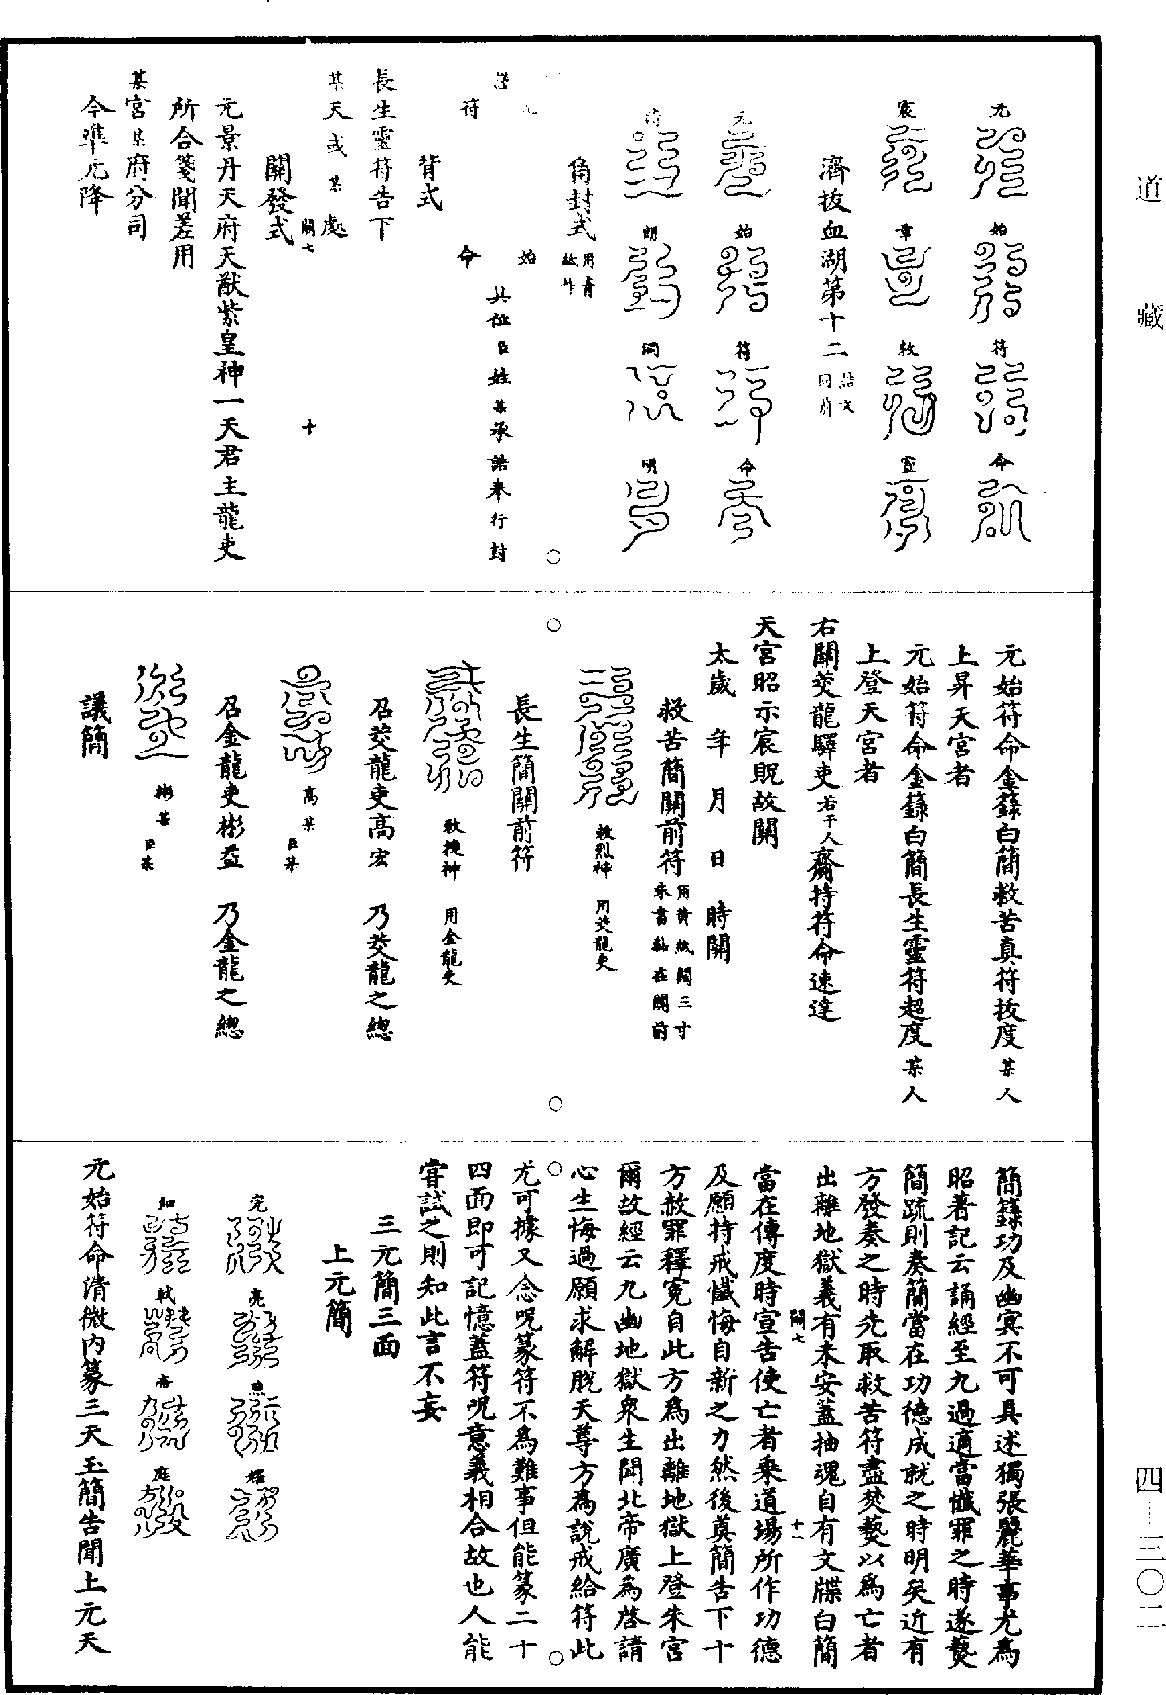 道藏
四—三〇二
元　始　符　命
宸　章　敕　靈
濟拔血湖第十二
元　始　符　命
符　朗　洞　明
角封式
符　命
具位臣姓某承誥奉行封
背式
長生靈符告下
某天或某處
關發式
元景丹天府天猷紫皇神一天君主龍吏
所合箋聞差用
某宮某府分司
今準元降
元始符命金籙白簡救苦真符拔度某人
上昇天宮者
元始符命金籙白簡長生靈符超度某人
上登天宮者
右關茭龍驛吏若干人齎持符命速達
天宮昭示宸貺故關
太歲　年　月　日　時關
救苦簡關前符用黃紙闊三寸朱書黏在關前
敕烈神　用茭龍吏
長生簡關前符
敕捷神　用金龍吏
召茭龍吏高宏　乃茭龍之總
高某　臣某
召金龍吏彬益　乃金龍之總
彬某　臣某
議簡
簡籙功及幽冥不可具述獨張麗華事尤為
昭著記云誦經至九過適當懺罪之時遂爇
簡疏則奏簡當在功德成就之時明矣近有
方發奏之時先取救苦符盡焚爇以為亡者
出離地獄義有未安蓋抽魂自有文牒白簡
當在傳度時宣告使亡者乘道場所作功德
及願持戒懺悔自新之力然後奠簡告下十
方赦罪釋冤自此方為出離地獄上登朱宮
爾故經云九幽地獄眾生聞北帝廣為啓請
心生悔過願求解脫天尊方為說戒給符此
尤可據又念呪篆符不為難事但能篆二十
四面即可記憶蓋符呪意義相合故也人能
嘗試之則知此言不妄
三元簡三面
上元簡
元始符命清微內篆三天玉簡告聞上元天